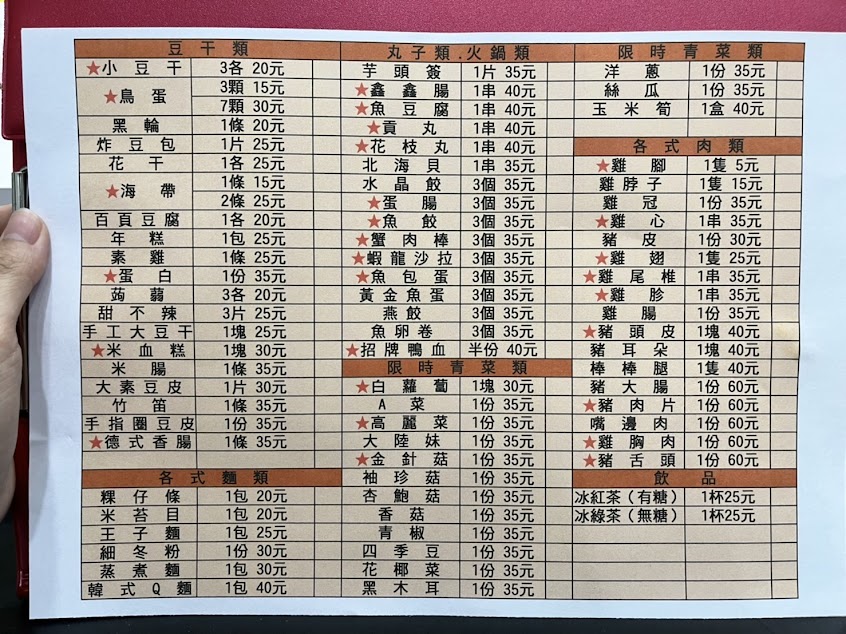 豆干類
★小豆干 3各 20元
★鳥蛋 3顆 15元
7顆 30元
黑輪 1條 20元
炸豆包 1片 25元
花干 1各 25元
★海帶 1條 15元
2條 25元
百頁豆腐 1各 20元
年糕 1包 25元
素雞 1條 25元
★蛋白 1份 35元
蒟蒻 3各 20元
甜不辣 3片 25元
手工大豆干 1塊 25元
★米血糕 1塊 30元
米腸 1條 35元
大素豆皮 1片 30元
竹笛 1條 35元
手指圈豆皮 1份 35元
★德式香腸 1條 35元
各式麵類
粿仔條 1包 20元
米苔目 1包 20元
王子麵 1包 25元
細冬粉 1份 30元
蒸煮麵 1包 30元
韓式Q麵 1包 40元
丸子類.火鍋類
芋頭簽 1片 35元
★鑫鑫腸 1串 40元
★魚豆腐 1串 40元
★貢丸 1串 40元
★花枝丸 1串 40元
北海貝 1串 35元
水晶餃 3個 35元
★蛋腸 3個 35元
★魚餃 3個 35元
★蟹肉棒 3個 35元
★蝦龍沙拉 3個 35元
★魚包蛋 3個 35元
黃金魚蛋 3個 35元
燕餃 3個 35元
魚卵卷 3個 35元
★招牌鴨血 半份 40元
限時青菜類
★白蘿蔔 1塊 30元
A菜 1份 35元
★高麗菜 1份 35元
大陸妹 1份 35元
★金針菇 1份 35元
袖珍菇 1份 35元
杏鮑菇 1份 35元
香菇 1份 35元
青椒 1份 35元
四季豆 1份 35元
花椰菜 1份 35元
黑木耳 1份 35元
限時青菜類
洋蔥 1份 35元
絲瓜 1份 35元
玉米筍 1盒 40元
各式肉類
★雞腳 1隻 5元
雞脖子 1隻 15元
雞冠 1份 35元
★雞心 1串 35元
豬皮 1份 30元
★雞翅 1隻 25元
★雞尾椎 1串 35元
★雞胗 1串 35元
雞腸 1份 35元
★豬頭皮 1塊 40元
豬耳朵 1塊 40元
棒棒腿 1隻 40元
豬大腸 1份 60元
★豬肉片 1份 60元
嘴邊肉 1份 60元
★雞胸肉 1份 60元
★豬舌頭 1份 60元
飲品
冰紅茶(有糖) 1杯25元
冰綠茶(無糖) 1杯25元